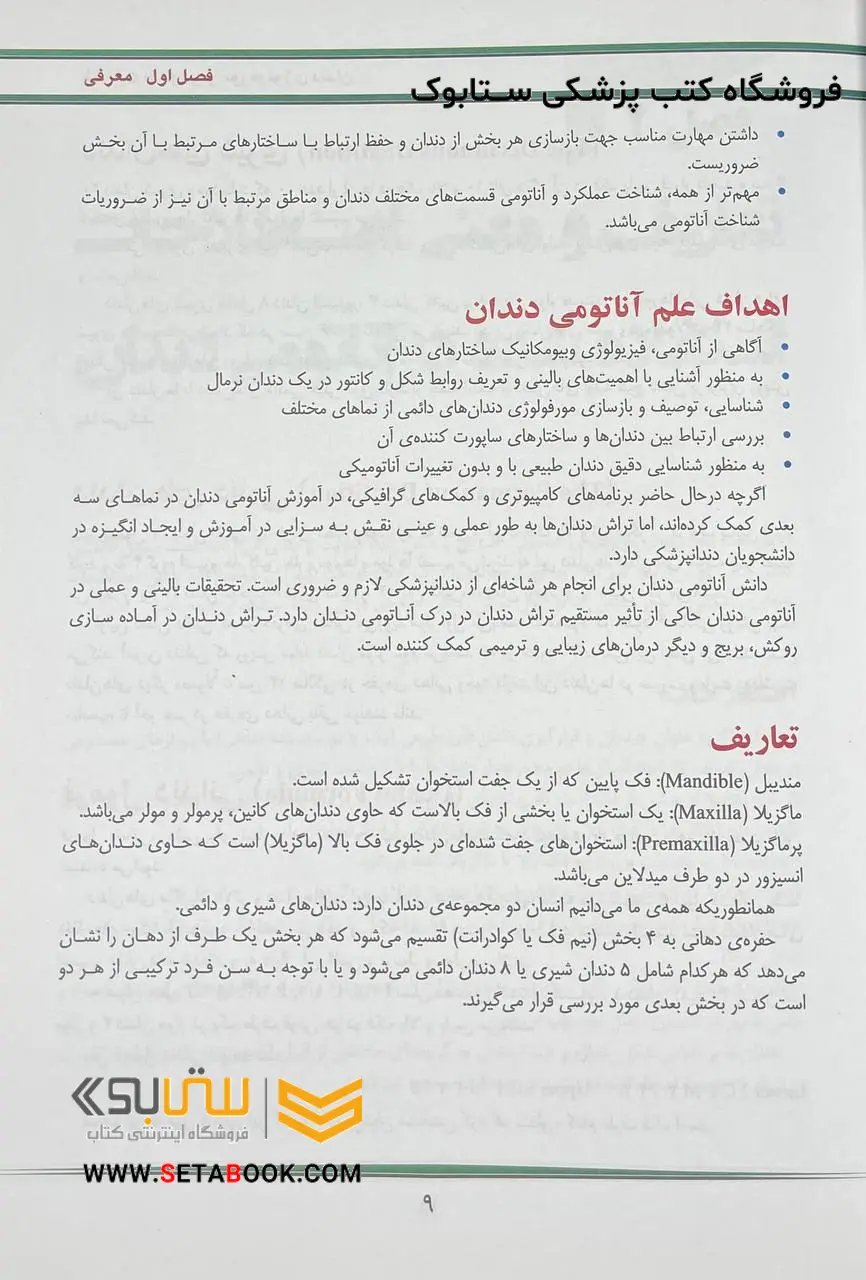 فصل اول معرفی
فروشگاه کتب پزشکی ستابوک
• داشتن مهارت مناسب جهت بازسازی هر بخش از دندان و حفظ ارتباط با ساختارهای مرتبط با آن بخش
ضروریست.
• مهم‌تر از همه، شناخت عملکرد و آناتومی قسمت‌های مختلف دندان و مناطق مرتبط با آن نیز از ضروریات
شناخت آناتومی می‌باشد.
اهداف علم آناتومی دندان
• آگاهی از آناتومی، فیزیولوژی وبیومکانیک ساختارهای دندان
• به منظور آشنایی با اهمیت‌های بالینی و تعریف روابط شکل و کانتور در یک دندان نرمال
• شناسایی، توصیف و بازسازی مورفولوژی دندان‌های دائمی از نماهای مختلف
• بررسی ارتباط بین دندان‌ها و ساختارهای ساپورت کننده‌ی آن
• به منظور شناسایی دقیق دندان طبیعی با و بدون تغییرات آناتومیکی
اگرچه درحال حاضر برنامه‌های کامپیوتری و کمک‌های گرافیکی، در آموزش آناتومی دندان در نماهای سه
بعدی کمک کرده‌اند، اما تراش دندان‌ها به طور عملی و عینی نقش به سزایی در آموزش و ایجاد انگیزه در
دانشجویان دندانپزشکی دارد.
دانش آناتومی دندان برای انجام هر شاخه‌ای از دندانپزشکی لازم و ضروری است. تحقیقات بالینی و عملی در
آناتومی دندان حاکی از تأثیر مستقیم تراش دندان در درک آناتومی دندان دارد. تراش دندان در آماده سازی
روکش، بریج و دیگر درمان‌های زیبایی و ترمیمی کمک کننده است.
تعاریف
مندیبل (Mandible): فک پایین که از یک جفت استخوان تشکیل شده است.
ماگزیلا (Maxilla): یک استخوان یا بخشی از فک بالاست که حاوی دندان‌های کانین، پرمولر و مولر می‌باشد.
پرماگزیلا (Premaxilla): استخوان‌های جفت شده‌ای در جلوی فک بالا (ماگزیلا) است که حاوی دندان‌های
انسیزور در دو طرف میدلاین می‌باشد.
همانطوریکه همه‌ی ما می‌دانیم انسان دو مجموعه‌ی دندان دارد: دندان‌های شیری و دائمی.
حفره‌ی دهانی به ۴ بخش (نیم فک یا کوادرانت) تقسیم می‌شود که هر بخش یک طرف از دهان را نشان
می‌دهد که هرکدام شامل ۵ دندان شیری یا ۸ دندان دائمی می‌شود و یا با توجه به سن فرد ترکیبی از هر دو
است که در بخش بعدی مورد بررسی قرار می‌گیرند.
ستابوک
فروشگاه اینترنتی کتاب
WWW.SETABOOK.COM
۹